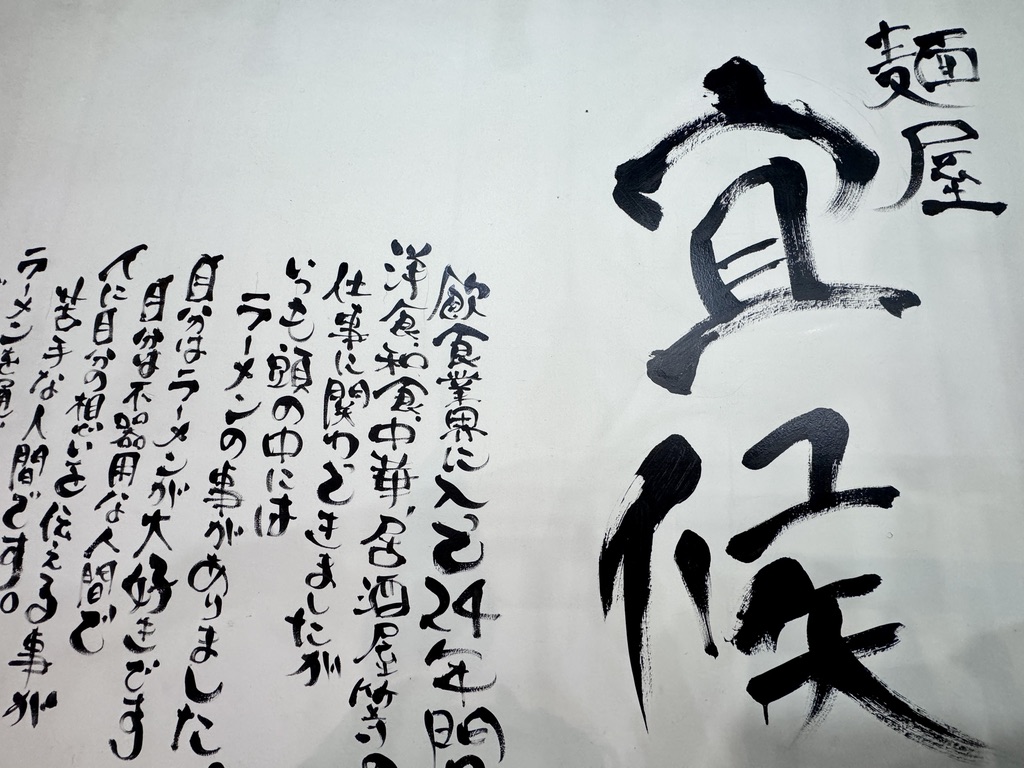 麺屋
宜候
飲食業界に入って24年間
洋食、和食、中華、居酒屋等の
仕事に関わってきましたが
いつも頭の中には
ラーメンの事がありました。
自分はラーメンが大好きです
自分は不器用な人間で
人に自分の想いを伝える事が
苦手な人間です。
ラーメンを通